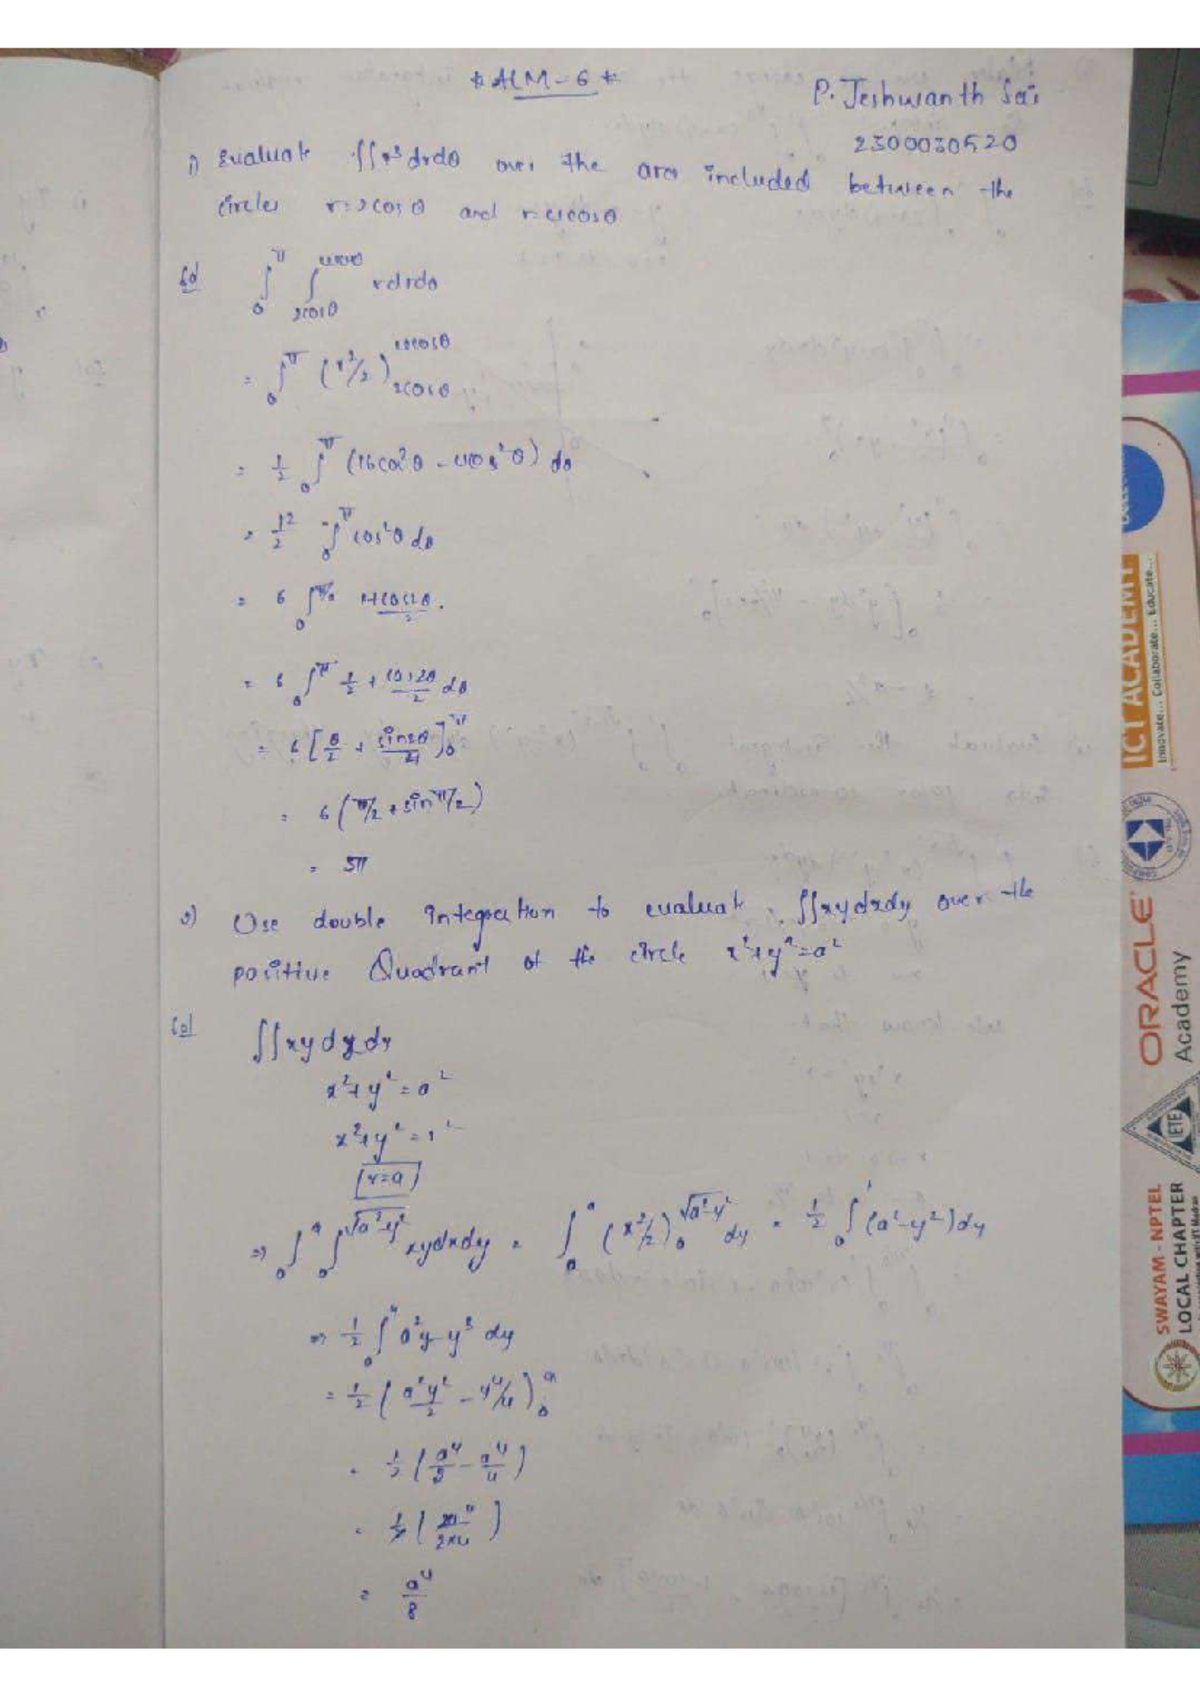 * ALM - 6 *
P. Jeshwanth Sai
2300030520
1) Evaluate ∫∫r³ drdθ over the area included between the
circles r=2cosθ and r=4cosθ
Sol ∫₀^π ∫_{2cosθ}^{4cosθ} r dr dθ
= ∫₀^π (r²/2)_{2cosθ}^{4cosθ}
= 1/2 ∫₀^π (16cos²θ - 4cos²θ) dθ
= 12/2 ∫₀^π cos²θ dθ
= 6 ∫₀ 1+cos2θ/2.
= 6 ∫₀^π 1/2 + cos2θ/2 dθ
= 6 [θ/2 + sin2θ/4]₀^π
= 6 (π/2 + sin π/2)
= 5π
2) Use double integration to evaluate ∫∫xydxdy over the
positive Quadrant of the circle x²+y²=a²
Sol ∫∫xydydx
x²+y²=a²
x²+y²=r²
r=a
=> ∫₀^a ∫₀^{√a²-y²} xydxdy = ∫₀^a (x²/2)₀^{√a²-y²} dy = 1/2 ∫₀ (a²-y²)dy
=> 1/2 ∫₀ a²y-y³ dy
= 1/2 (a²y²/2 - y⁴/4)₀^a
= 1/2 (a⁴/2 - a⁴/4)
= 1/2 ( /2×4)
= a⁴/8
ICT ACADEMY
Innovate... Collaborate... Educate...
ORACLE
Academy
IETE
SWAYAM - NPTEL
LOCAL CHAPTER